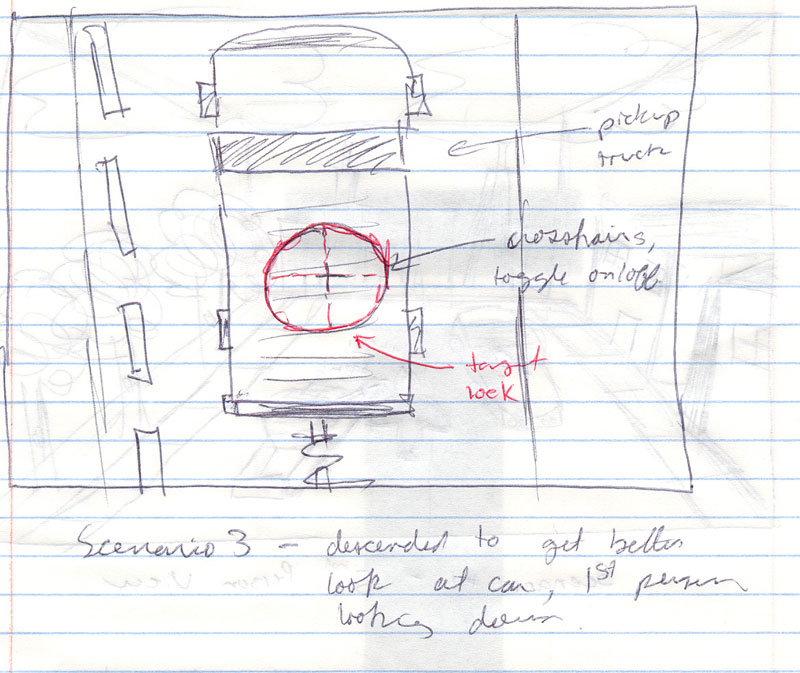 pickup
truck
crosshairs,
toggle on/off
target
lock
Scenario 3 - descended to get better
look at car, 1st person
looking down.